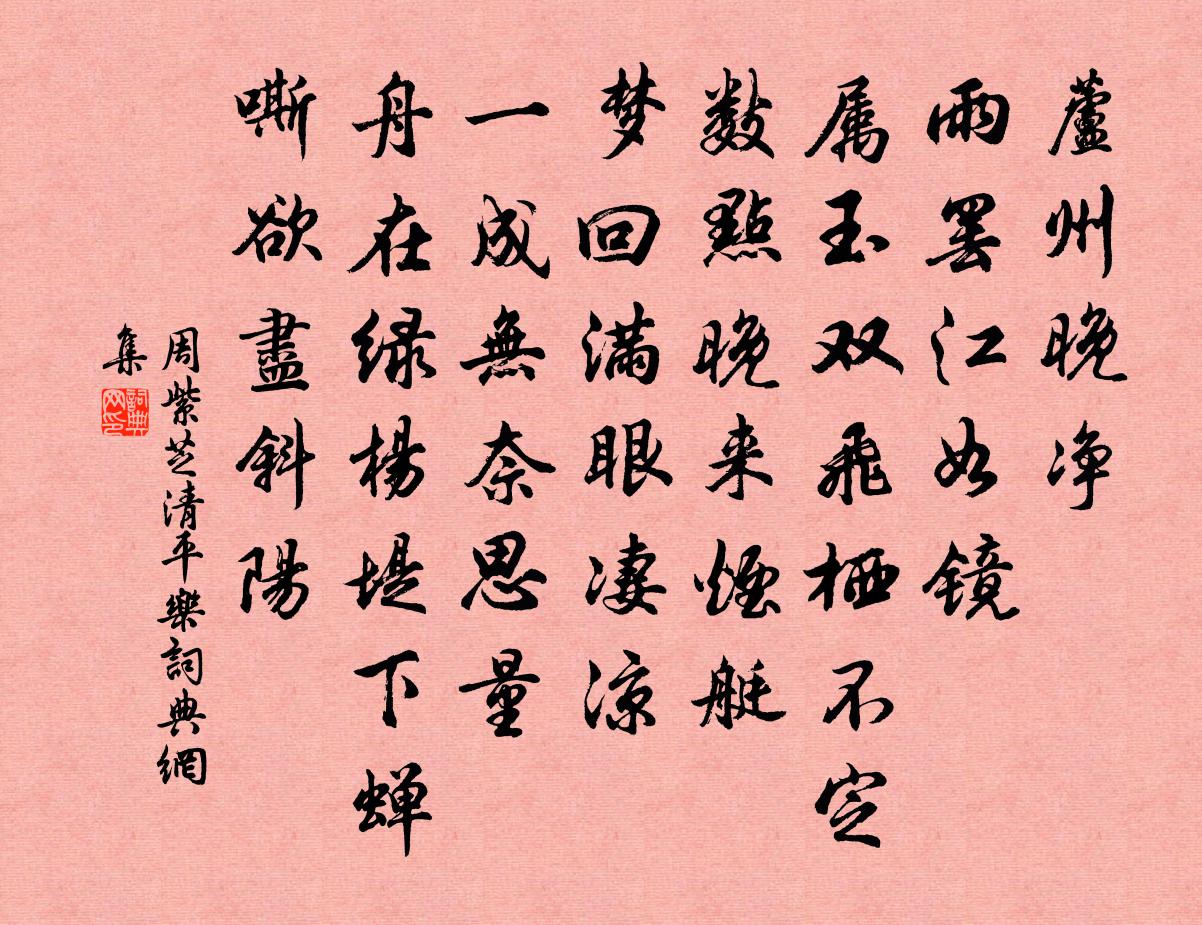 蘆州晚净
雨罢江如镜
属玉双飛栖不定
数點晚来煙艇
梦回满眼凄凉
一成無奈思量
舟在绿楊堤下蝉
嘶欲盡斜陽
周紫芝清平樂詞典網
集
詞典網印